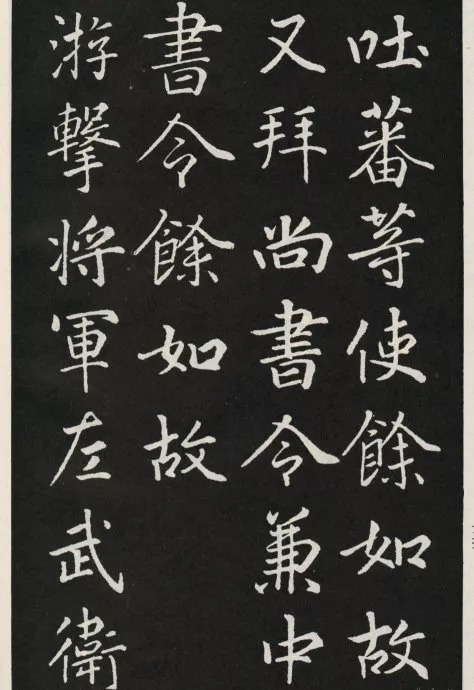 吐蕃等使餘如故
又拜尚書令兼中
書令餘如故
游擊將軍左武衛